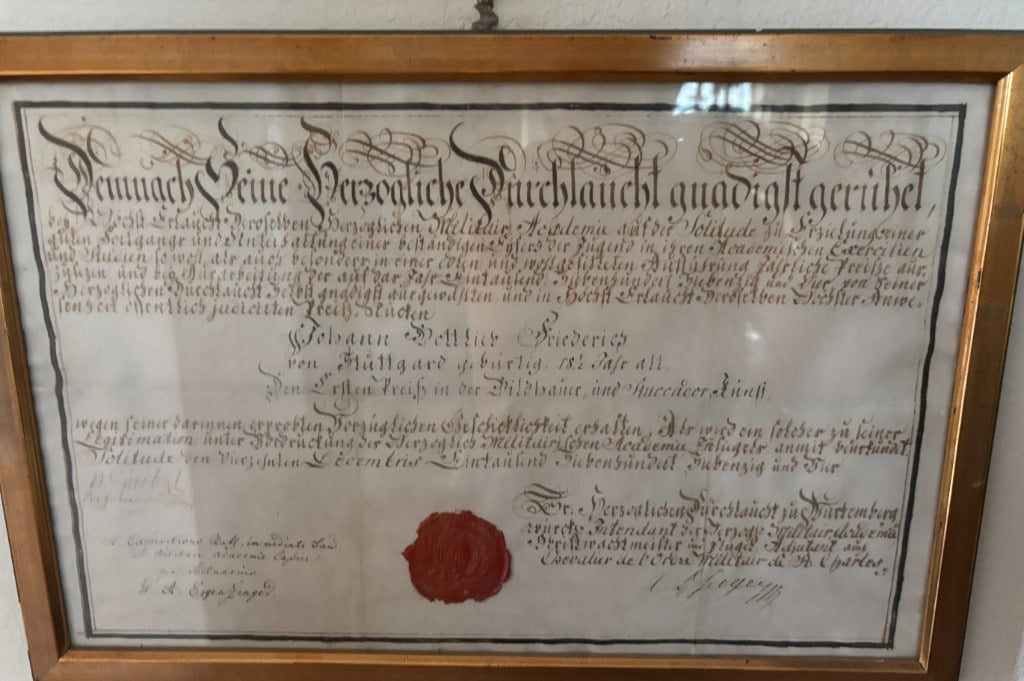 Demnach Seine Herzogliche Durchlaücht gnädigst gerühet,
Höchst Erlaucht Deroselben Herzoglichen Militair Academie auf der Solitude zu Erziehung einer
guten Fortgangs und Unterhaltung einer beständigen Eyfers der Jugend in ihren Academischen Exercitien
und Studien, sowohl als auch besonders in einer edlen und wohlgesitteten Aufführung Jährliche Preiße aus-
zusezen und bey der auf das Jahr Eintausend Siebenhundert Siebenzig und Vier, von Seiner
Herzoglichen Durchlaucht Selbst gnädigst ausgewählten und in Höchst Erlaucht Deroselben Höchster Anwe-
senheit öffentlich judicirten Preiß-Stucken
Johann Gottlieb Friederich
von Stuttgard gebürtig, 18½ Jahr alt,
Den Ersten Preiß in der Bildhauer, und Stuccator Kunst
wegen seiner darinnen erprobten Vorzüglichen Geschicklichkeit erhalten, Als wird ein solcher zu seiner
Legitimation unter Vordruckung der Herzoglich Militairischen Academie Insiegels anmit beurkundet
Solitude den Vierzehnten Decembris Eintausend Siebenhundert Siebenzig und Vier
Sr. Herzoglichen Dürchlaucht zu Würtemberg
würckl. Intendant der Herzogl. Militair Academie
Obristwachtmeister und Flügel Adjutant auch
Chevalier de l'Ordre Militair de St. Charles.
Expeditions Rath, immediate
Academie Cassier